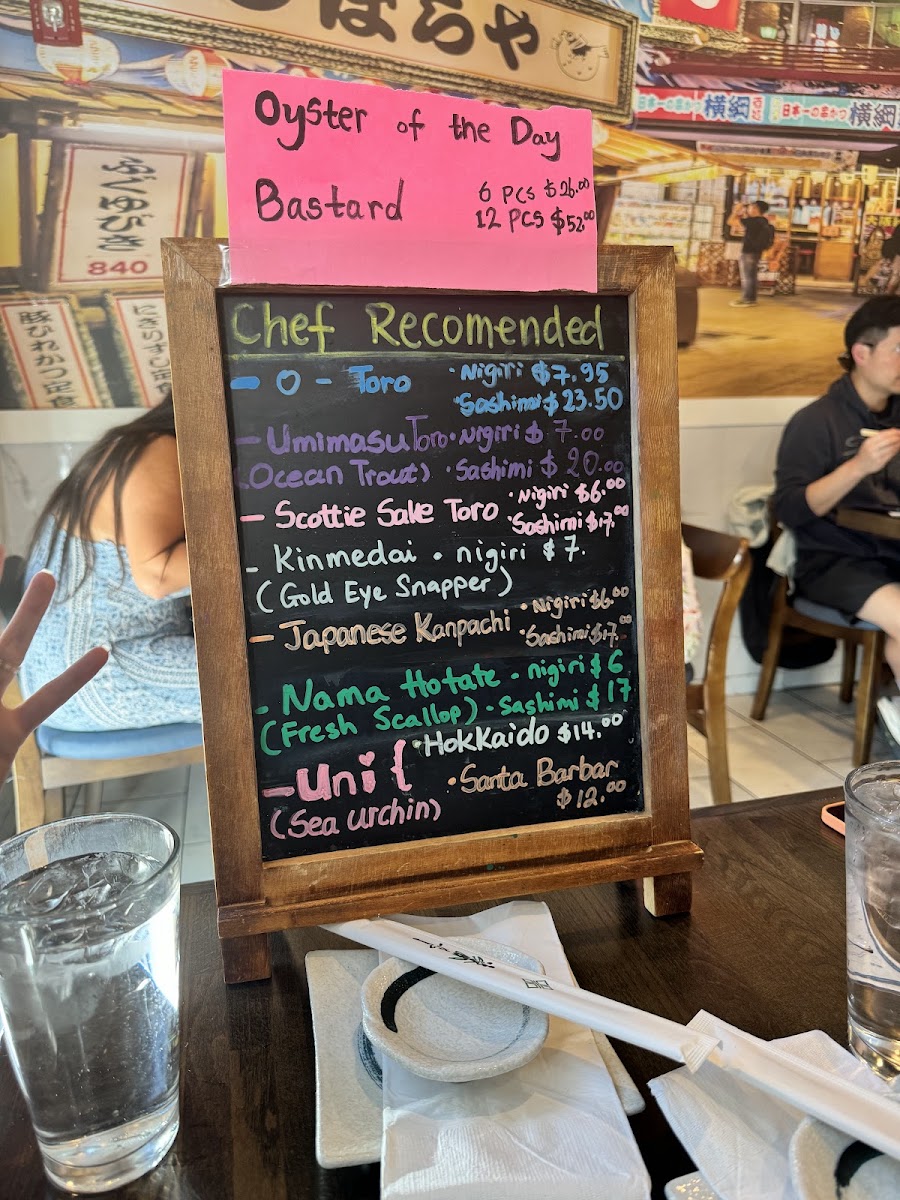 ばらや
日本一の串かつ 横綱
日本一の串かつ 横綱
840
Oyster of the Day
Bastard
6 pcs $26.00
12 pcs $52.00
Chef Recomended
- O - Toro
· Nigiri $7.95
· Sashimi $23.50
- Umimasu Toro · Nigiri $7.00
(Ocean Trout) · Sashimi $20.00
- Scottie Sake Toro · Nigiri $6.00
· Sashimi $17.00
- Kinmedai · nigiri $7.
(Gold Eye Snapper)
- Japanese Kanpachi · Nigiri $6.00
· Sashimi $17.
- Nama Hotate · nigiri $6
(Fresh Scallop) · Sashimi $17
- Uni { · Hokkaido $14.00
· Santa Barbar
$12.00
(Sea urchin)